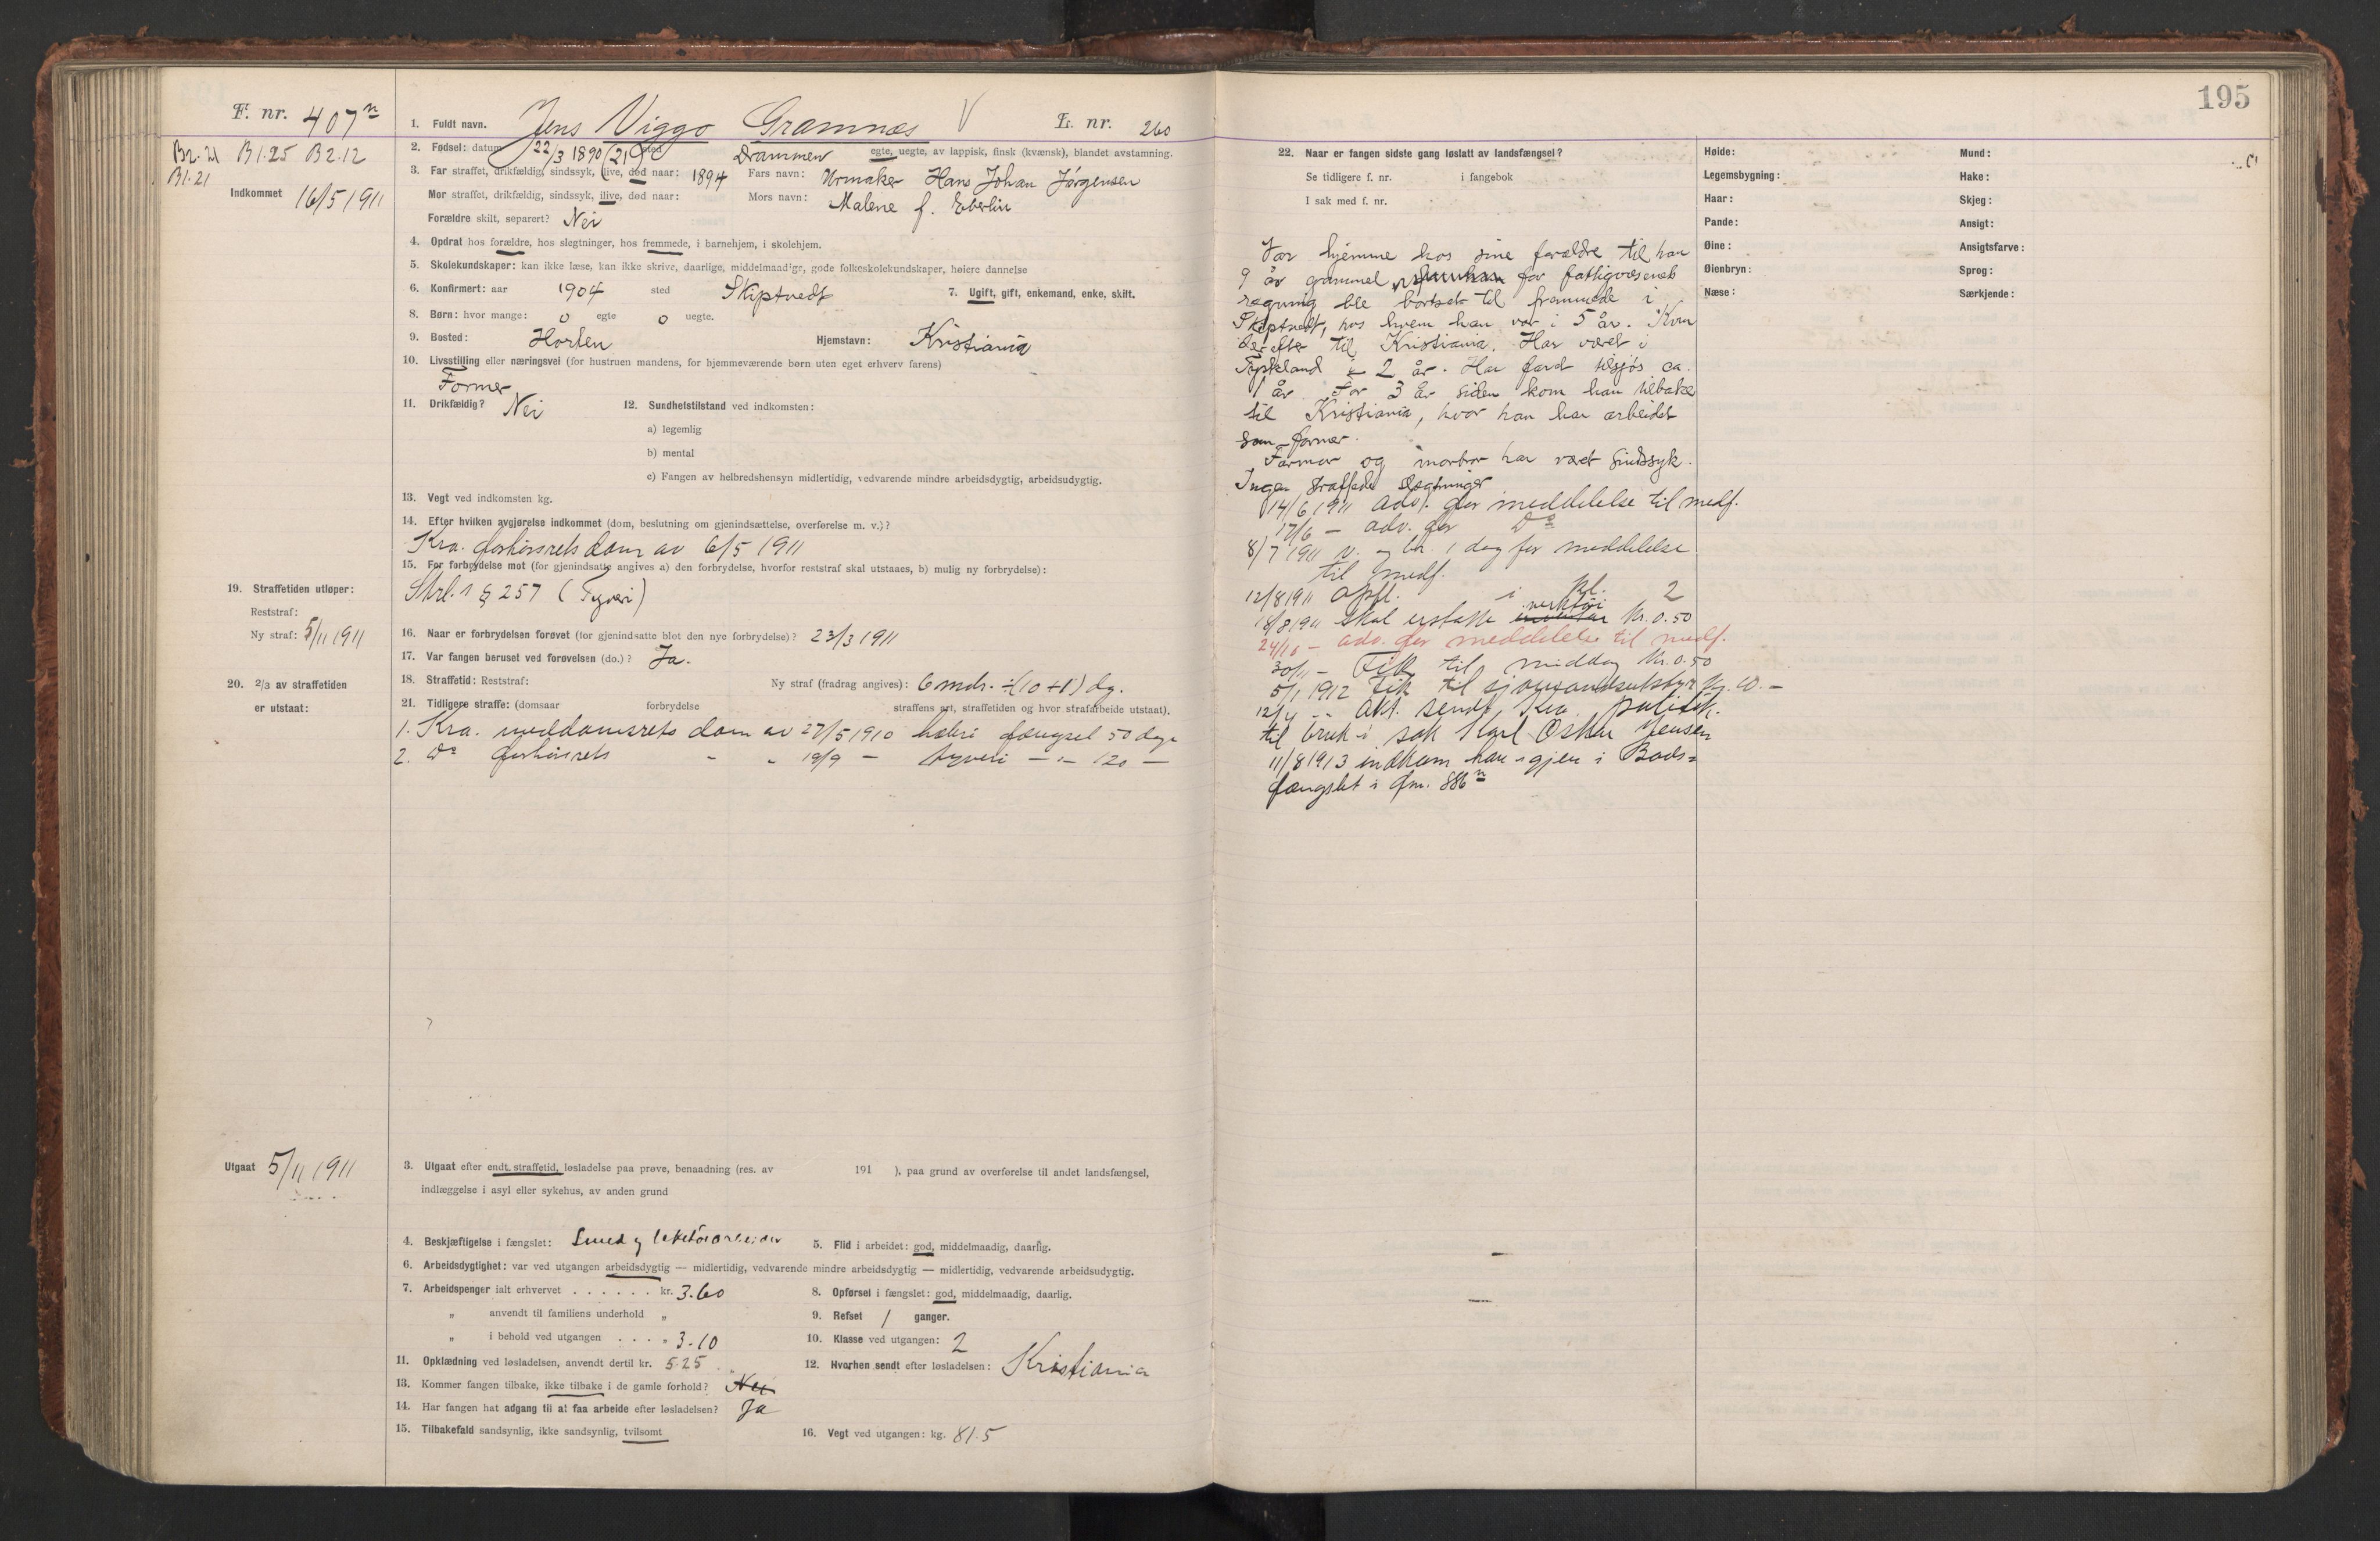 F. nr. 407n
B2.21 B1.25 B2.12
B1.21
Indkommet 16/5 1911
19. Straffetiden utløper:
Reststraf:
Ny straf: 5/11 1911
20. 2/3 av straffetiden
er utstaat:
Utgaat 5/11 1911
1. Fuldt navn. Jens Viggo Gramnæs V L. nr. 260
2. Fødsel: datum 22/3 1890 (21) sted Drammen egte, uegte, av lappisk, finsk (kvænsk), blandet avstamning.
3. Far straffet, drikfældig, sindssyk, ilive, død naar: 1894 Fars navn: Urmaker Hans Johan Jørgensen
Mor straffet, drikfældig, sindssyk, ilive, død naar: Mors navn: Malene f. Eberlin
Forældre skilt, separert? Nei
4. Opdrat hos forældre, hos slegtninger, hos fremmede, i barnehjem, i skolehjem.
5. Skolekundskaper: kan ikke læse, kan ikke skrive, daarlige, middelmaadige, gode folkeskolekundskaper, høiere dannelse
6. Konfirmert: aar 1904 sted Skiptvedt 7. Ugift, gift, enkemand, enke, skilt.
8. Børn: hvor mange: 0 egte 0 uegte.
9. Bosted: Horten Hjemstavn: Kristiania
10. Livsstilling eller næringsvei (for hustruen mandens, for hjemmeværende børn uten eget erhverv farens)
Former
11. Drikfældig? Nei 12. Sundhetstilstand ved indkomsten:
a) legemlig
b) mental
c) Fangen av helbredshensyn midlertidig, vedvarende mindre arbeidsdygtig, arbeidsudygtig.
13. Vegt ved indkomsten kg.
14. Efter hvilken avgjørelse indkommet (dom, beslutning om gjenindsættelse, overførelse m. v.)?
Kra. forhørsrets dom av 6/5 1911
15. For forbrydelse mot (for gjenindsatte angives a) den forbrydelse, hvorfor reststraf skal utstaaes, b) mulig ny forbrydelse):
Strl.s § 257 (Tyveri)
16. Naar er forbrydelsen forøvet (for gjenindsatte blot den nye forbrydelse)? 23/3 1911
17. Var fangen beruset ved forøvelsen (do.)? Ja.
18. Straffetid: Reststraf: Ny straf (fradrag angives): 6 mdr. ÷ (10 + 1) dg.
21. Tidligere straffe: (domsaar forbrydelse straffens art, straffetiden og hvor strafarbeide utstaat).
1. Kra. meddomsrets dom av 27/5 1910 hæleri fængsel 50 dage
2. Do forhørsrets - " 19/9 - tyveri - " - 120 -
3. Utgaat efter endt straffetid, løsladelse paa prøve, benaadning (res. av 191 ), paa grund av overførelse til andet landsfængsel,
indlæggelse i asyl eller sykehus, av anden grund
4. Beskjæftigelse i fængslet: Smed og 5. Flid i arbeidet: god, middelmaadig, daarlig.
6. Arbeidsdygtighet: var ved utgangen arbeidsdygtig — midlertidig, vedvarende mindre arbeidsdygtig — midlertidig, vedvarende arbeidsudygtig.
7. Arbeidspenger ialt erhvervet . . . . . . kr. 3.60 8. Opførsel i fængslet: god, middelmaadig, daarlig.
„ anvendt til familiens underhold „ 9. Refset 1 ganger.
„ i behold ved utgangen . . . „ 3.10 10. Klasse ved utgangen: 2
11. Opklædning ved løsladelsen, anvendt dertil kr. 5.25 12. Hvorhen sendt efter løsladelsen: Kristiania
13. Kommer fangen tilbake, ikke tilbake i de gamle forhold? Nei
14. Har fangen hat adgang til at faa arbeide efter løsladelsen? Ja
15. Tilbakefald sandsynlig, ikke sandsynlig, tvilsomt 16. Vegt ved utgangen: kg. 81.5
195
22. Naar er fangen sidste gang løslatt av landsfængsel?
Se tidligere f. nr. i fangebok
I sak med f. nr.
Var hjemme hos sine forældre til han
9 år gammel for fattigvæsenets
regning ble bortsat til fremmede i
Skiptvedt, hos hvem han var i 5 år. Kom
derefter til Kristiania. Har været i
Tyskland i 2 år. Har fard tilsjøs ca.
1 år. For 3 år siden kom han tilbake
til Kristiania, hvor han har arbeidet
som former.
Farmor og morbror har været sindssyk.
Ingen straffede slegtninger
14/6 1911 adv. for meddelelse til medf.
17/6 - adv. for Do
8/7 1911 v. og br. 1 dag for meddelelse
til medf.
12/8 1911 opfl. i kl. 2
18/8 1911 skal erstatte verktøi kr. 0.50
24/10 - adv. for meddelelse til medf.
30/11 - Fik til middag kr. 0.50
5/1 1912 Fik til sjømandsutstyr kr. 10.-
12/4 - - Akt. sendt Kra politik.
til bruk i sak Karl Oskar Jensen
11/8 1913 indkom han igjen i Bods-
fængslet i fnr. 886n
Høide: Mund:
Legemsbygning: Hake:
Haar: Skjeg:
Pande: Ansigt:
Øine: Ansigtsfarve:
Øienbryn: Sprog:
Næse: Særkjende: